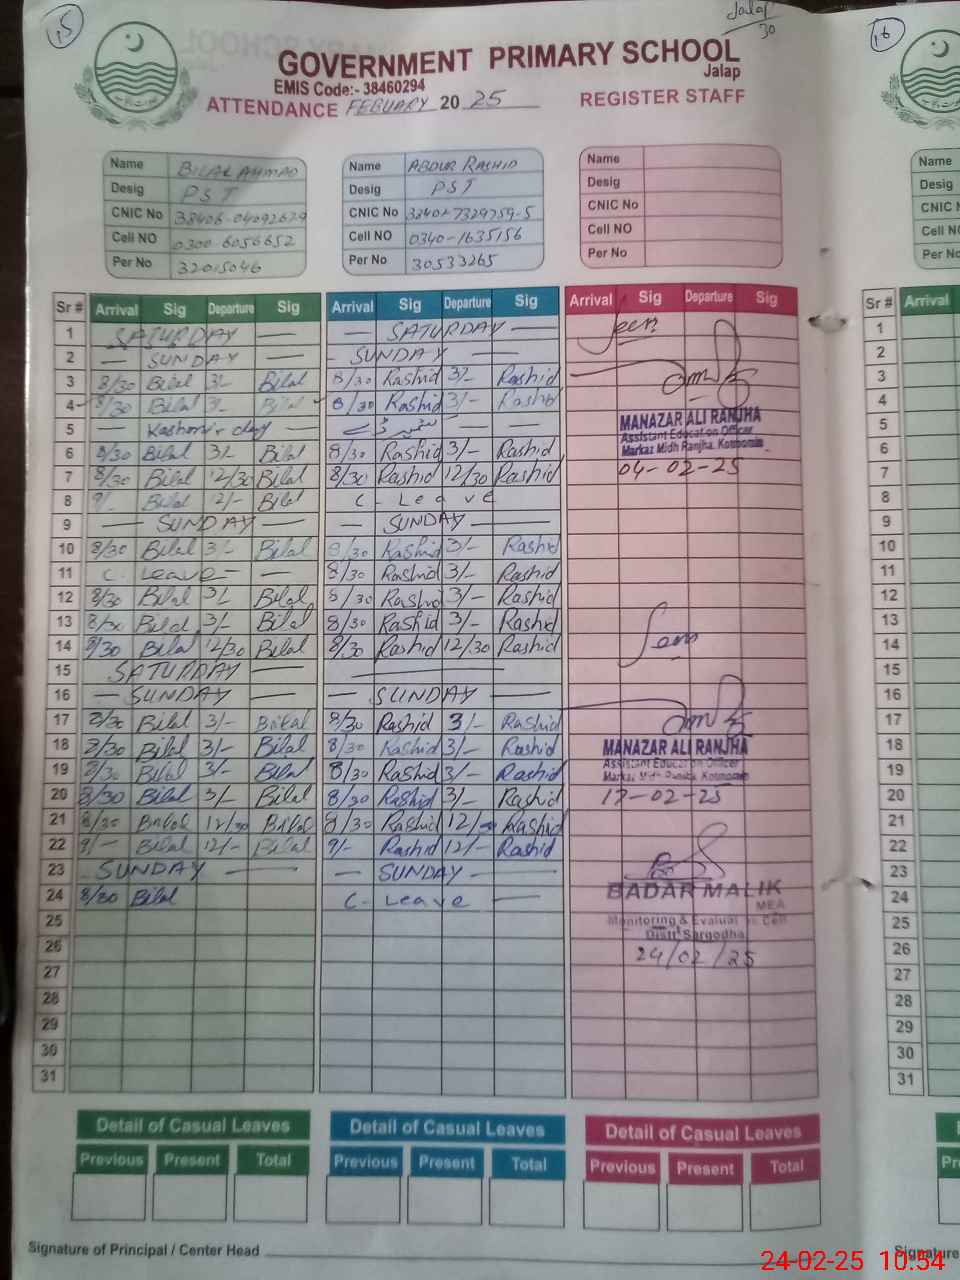 15
Jalap
30
16
GOVERNMENT PRIMARY SCHOOL
Jalap
EMIS Code:- 38460294
ATTENDANCE FEBUARY 20 25 REGISTER STAFF
Name BILAL AHMAD Name ABDUR RASHID Name Name
Desig PST Desig PST Desig Desig
CNIC No 38406-0409267-9 CNIC No CNIC No CNIC N
Cell NO 0300-6056652 Cell NO 0340-1635156 Cell NO Cell NO
Per No 32015046 Per No 30533265 Per No Per No
Sr # Arrival Sig Departure Sig Arrival Sig Departure Sig Arrival Sig Departure Sig Sr # Arrival
1 SATURDAY — — SATURDAY — Seen 1
2 — SUNDAY — - SUNDAY — 2
3 8/30 Bilal 3/- Bilal 8/30 Rashid 3/- Rashid 3
4 8/30 Bilal 3/- Bilal 8/30 Rashid 3/- Rashid 4
5 — Kashmir day — — 5
MANAZAR ALI RANJHA
Assistant Education Officer
Markaz Midh Ranjha, Kotmomin
6 8/30 Bilal 3/- Bilal 8/30 Rashid 3/- Rashid 6
7 8/30 Bilal 12/30 Bilal 8/30 Rashid 12/30 Rashid 04-02-25 7
8 9/- Bilal 12/- Bilal C - Leave 8
9 — SUNDAY — — SUNDAY — 9
10 8/30 Bilal 3/- Bilal 8/30 Rashid 3/- Rashid 10
11 C. Leave - — 8/30 Rashid 3/- Rashid 11
12 8/30 Bilal 3/- Bilal 8/30 Rashid 3/- Rashid 12
13 8/30 Bilal 3/- Bilal 8/30 Rashid 3/- Rashid 13
14 8/30 Bilal 12/30 Bilal 8/30 Rashid 12/30 Rashid Seen 14
15 SATURDAY — — 15
16 — SUNDAY — — SUNDAY — 16
17 8/30 Bilal 3/- Bilal 8/30 Rashid 3/- Rashid 17
18 8/30 Bilal 3/- Bilal 8/30 Rashid 3/- Rashid MANAZAR ALI RANJHA 18
19 8/30 Bilal 3/- Bilal 8/30 Rashid 3/- Rashid Assistant Education Officer 19
Markaz Midh Ranjha Kotmomin
20 8/30 Bilal 3/- Bilal 8/30 Rashid 3/- Rashid 17-02-25 20
21 8/30 Bilal 12/30 Bilal 8/30 Rashid 12/30 Rashid 21
22 9/- Bilal 12/- Bilal 9/- Rashid 12/- Rashid 22
23 SUNDAY — — SUNDAY — 23
24 8/30 Bilal C - Leave — BADAR MALIK 24
MEA
25 Monitoring & Evaluation Cell 25
Distt Sargodha
26 24/02/25 26
27 27
28 28
29 29
30 30
31 31
Detail of Casual Leaves Detail of Casual Leaves Detail of Casual Leaves
Previous Present Total Previous Present Total Previous Present Total Pr
Signature of Principal / Center Head Signature
24-02-25 10:54